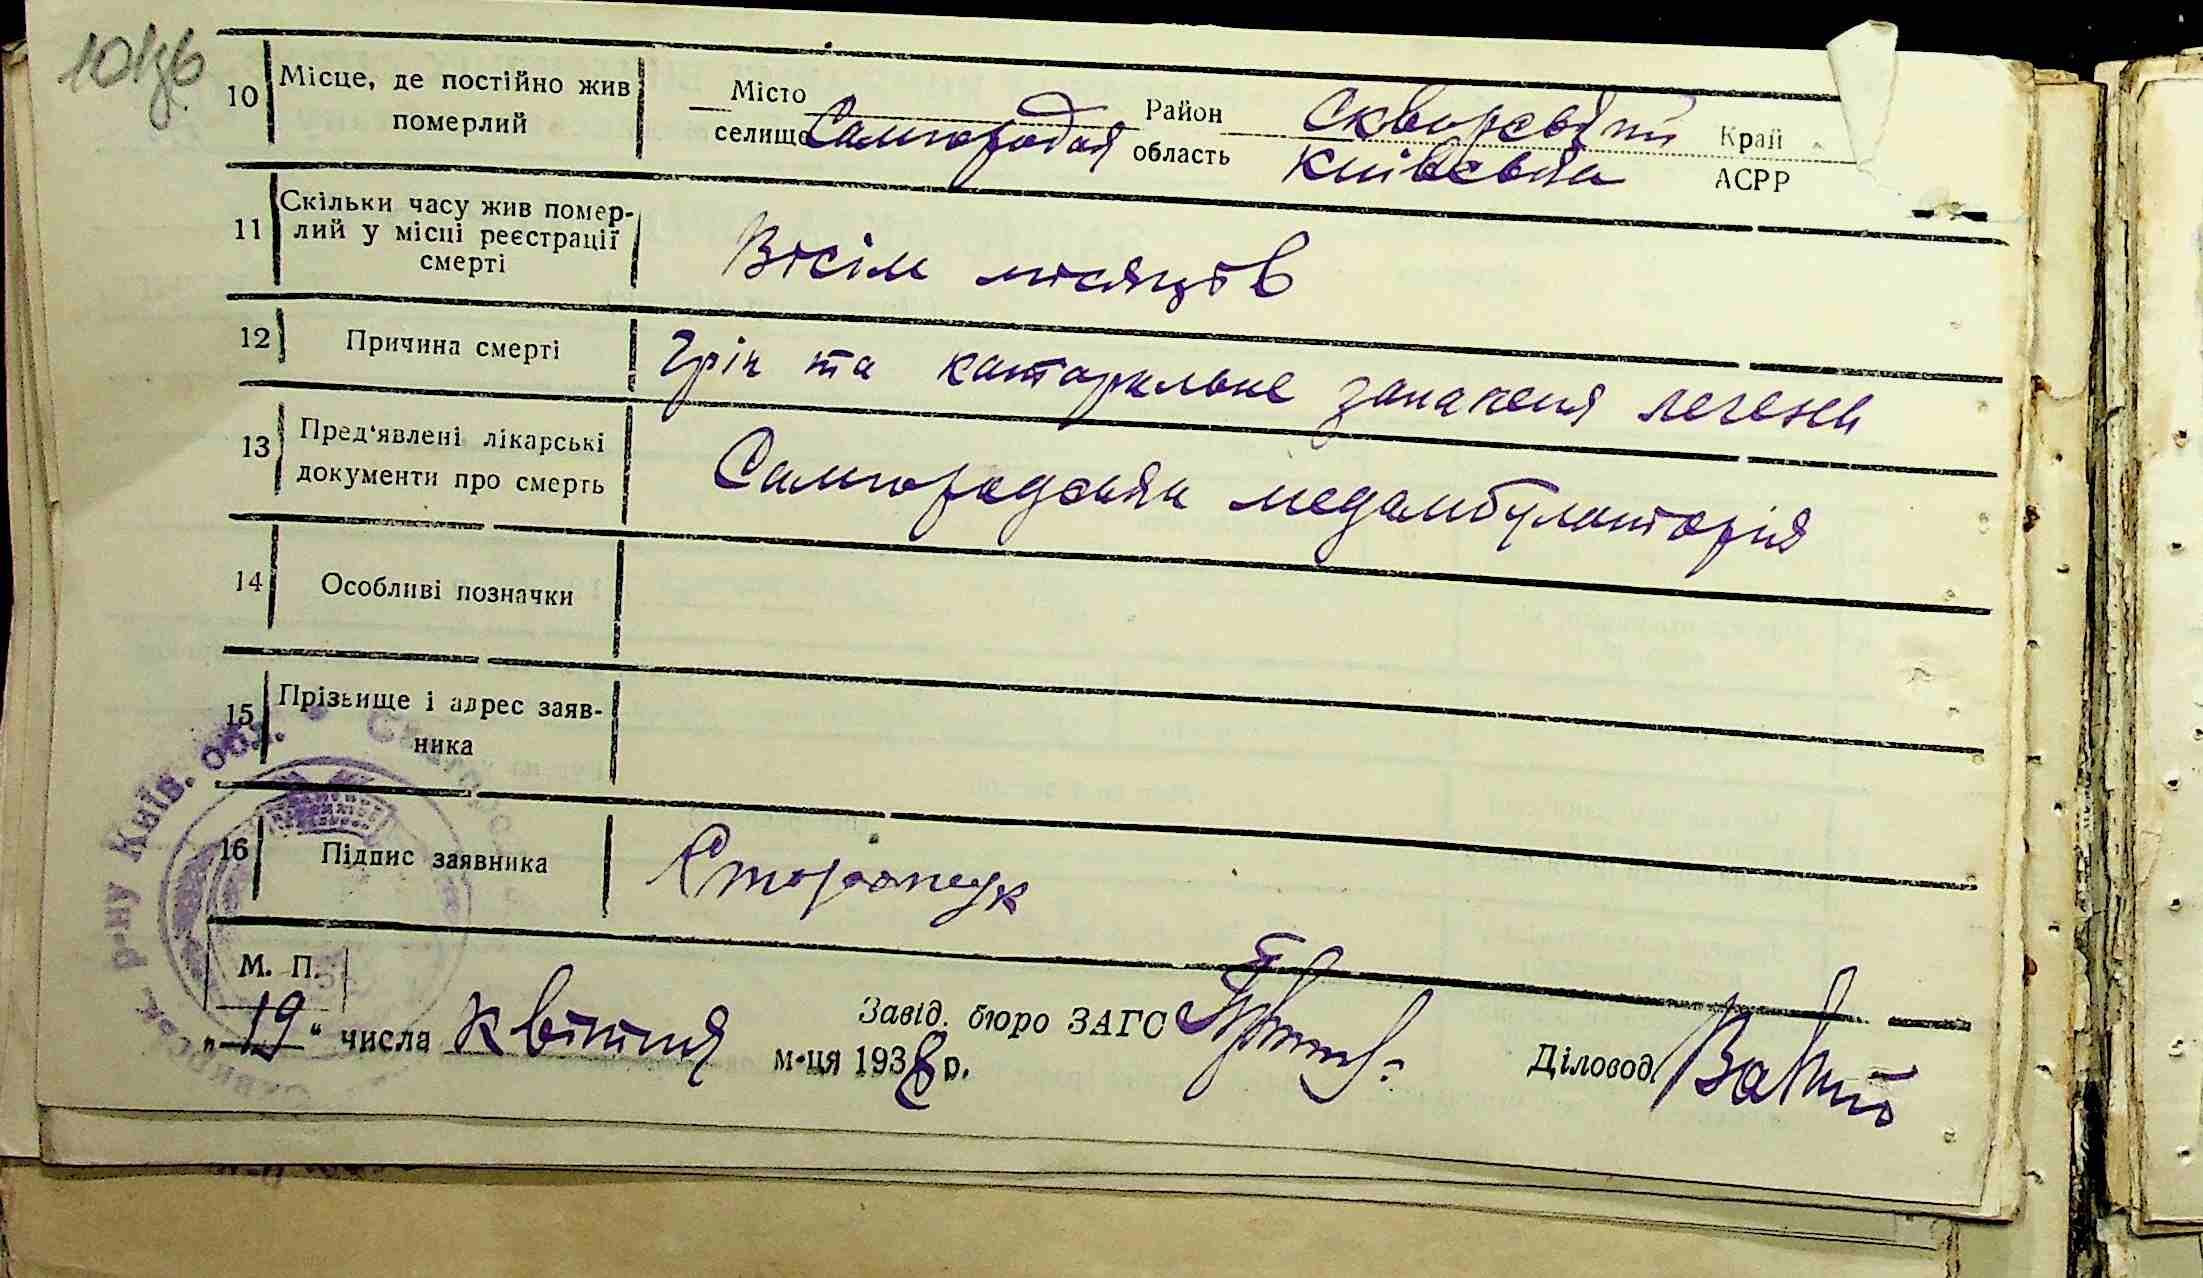 10 Місце, де постійно жив Місто Район Скворський Край
померлий селище Самгородок область Київська АСРР
11 Скільки часу жив помер-
лий у місці реєстрації
смерті
Вісім місяців
12 Причина смерті Гріп та катаральне запаленя легенів
13 Пред'явлені лікарські
документи про смерть
Самгородська медамбулаторія
14 Особливі позначки
15 Прізвище і адрес заяв-
ника
16 Підпис заявника
М. П.
„19“ числа квітня м-ця 1938 р. Завід. бюро ЗАГС Діловод
р-ну Київ. обл.